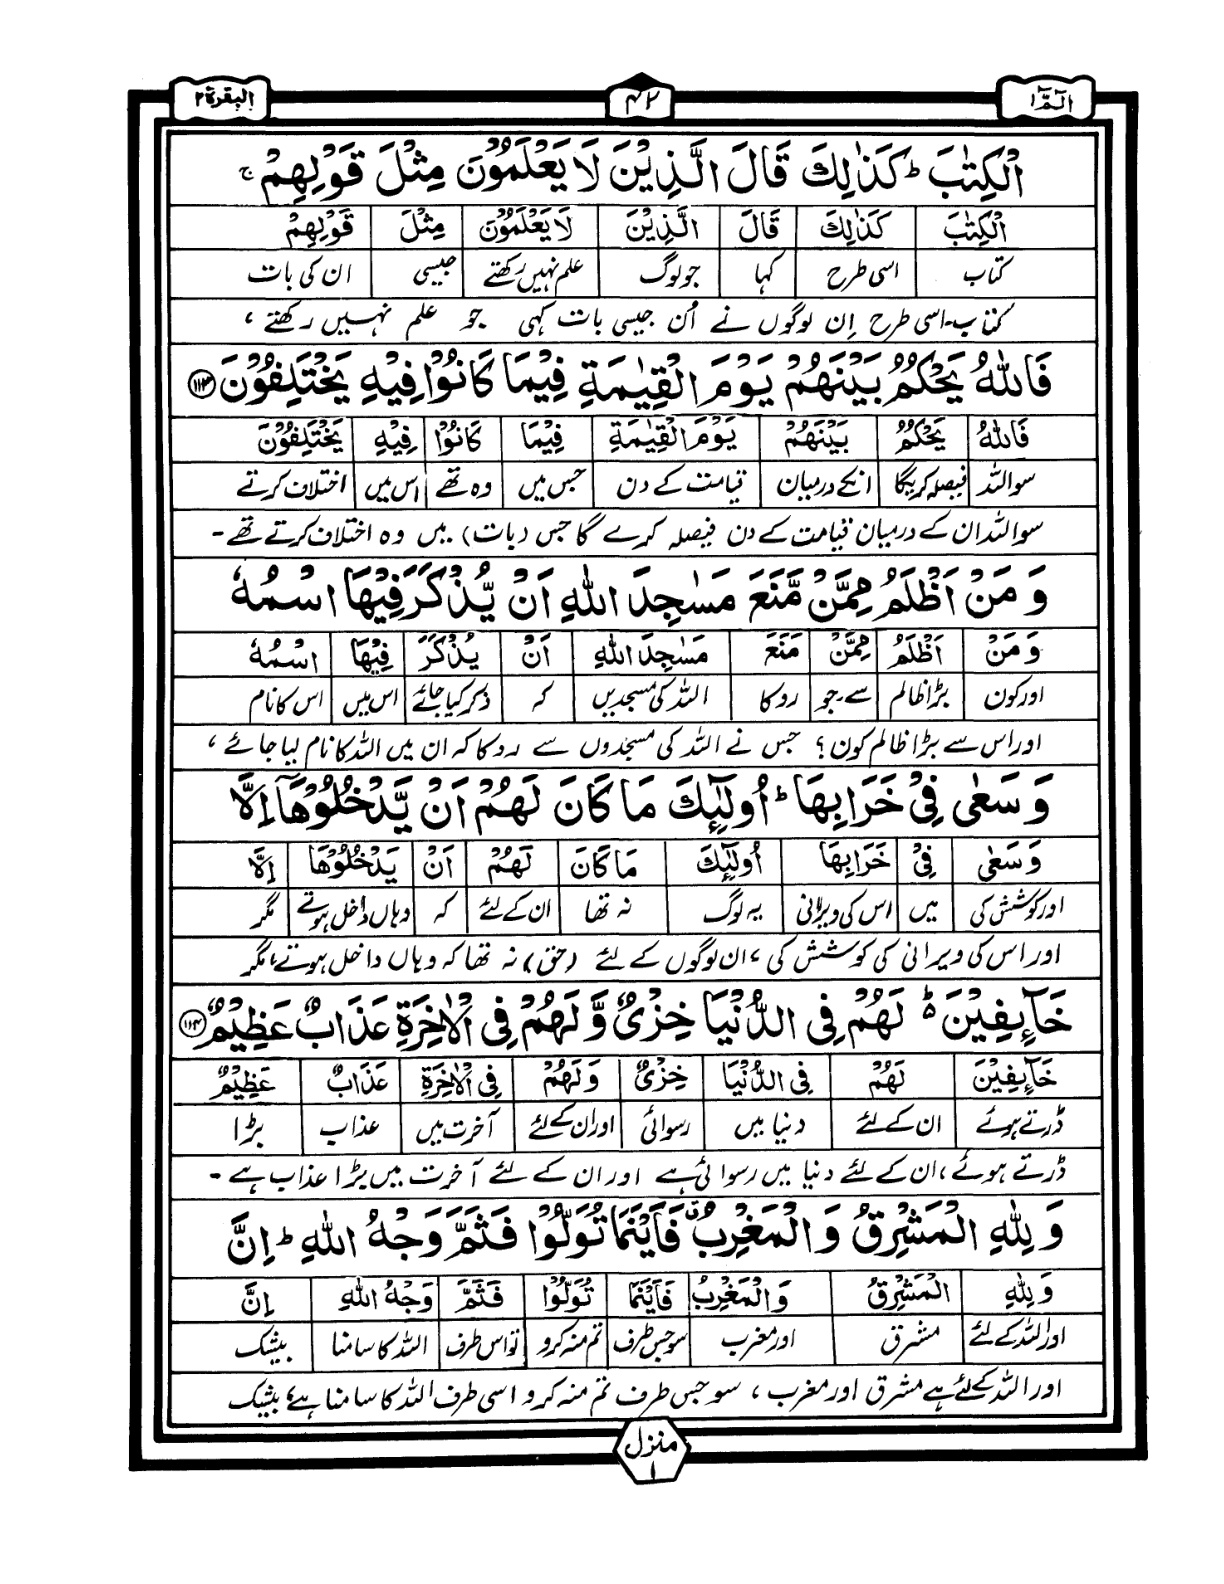 الٓمّٓ ۱
۴۲
البقرة ۲
الْكِتٰبَ ؕ كَذٰلِكَ قَالَ الَّذِيْنَ لَا يَعْلَمُوْنَ مِثْلَ قَوْلِهِمْ ۚ
الْكِتٰبَ كَذٰلِكَ قَالَ الَّذِيْنَ لَا يَعْلَمُوْنَ مِثْلَ قَوْلِهِمْ
کتاب اسی طرح کہا جو لوگ علم نہیں رکھتے جیسی ان کی بات
کتاب۔ اسی طرح اِن لوگوں نے اُن جیسی بات کہی جو علم نہیں رکھتے ،
فَاللّٰهُ يَحْكُمُ بَيْنَهُمْ يَوْمَ الْقِيٰمَةِ فِيْمَا كَانُوْا فِيْهِ يَخْتَلِفُوْنَ ۝۱۱۳
فَاللّٰهُ يَحْكُمُ بَيْنَهُمْ يَوْمَ الْقِيٰمَةِ فِيْمَا كَانُوْا فِيْهِ يَخْتَلِفُوْنَ
سو اللہ فیصلہ کریگا انکے درمیان قیامت کے دن جس میں وہ تھے اس میں اختلاف کرتے
سو اللہ ان کے درمیان قیامت کے دن فیصلہ کرے گا جس (بات) میں وہ اختلاف کرتے تھے ۔
وَ مَنْ اَظْلَمُ مِمَّنْ مَّنَعَ مَسٰجِدَ اللّٰهِ اَنْ يُّذْكَرَ فِيْهَا اسْمُهٗ
وَ مَنْ اَظْلَمُ مِمَّنْ مَنَعَ مَسٰجِدَ اللّٰهِ اَنْ يُذْكَرَ فِيْهَا اسْمُهٗ
اور کون بڑا ظالم سے۔جو روکا اللہ کی مسجدیں کہ ذکر کیا جائے اس میں اس کا نام
اور اس سے بڑا ظالم کون ؟ جس نے اللہ کی مسجدوں سے روکا کہ ان میں اللہ کا نام لیا جائے ،
وَ سَعٰى فِيْ خَرَابِهَا ؕ اُولٰٓئِكَ مَا كَانَ لَهُمْ اَنْ يَّدْخُلُوْهَاۤ اِلَّا
وَ سَعٰى فِيْ خَرَابِهَا اُولٰٓئِكَ مَا كَانَ لَهُمْ اَنْ يَدْخُلُوْهَا اِلَّا
اور کوشش کی میں اس کی ویرانی یہ لوگ نہ تھا ان کے لئے کہ وہاں داخل ہوتے مگر
اور اس کی ویرانی کی کوشش کی ، ان لوگوں کے لئے (حق) نہ تھا کہ وہاں داخل ہوتے، مگر
خَآئِفِيْنَ ؕ۬ لَهُمْ فِي الدُّنْيَا خِزْيٌ وَّلَهُمْ فِي الْاٰخِرَةِ عَذَابٌ عَظِيْمٌ ۝۱۱۴
خَآئِفِيْنَ لَهُمْ فِي الدُّنْيَا خِزْيٌ وَلَهُمْ فِي الْاٰخِرَةِ عَذَابٌ عَظِيْمٌ
ڈرتے ہوئے ان کے لئے دنیا میں رسوائی اور ان کے لئے آخرت میں عذاب بڑا
ڈرتے ہوئے ، ان کے لئے دنیا میں رسوائی ہے اور ان کے لئے آخرت میں بڑا عذاب ہے ۔
وَ لِلّٰهِ الْمَشْرِقُ وَ الْمَغْرِبُ ۗ فَاَيْنَمَا تُوَلُّوْا فَثَمَّ وَجْهُ اللّٰهِ ؕ اِنَّ
وَ لِلّٰهِ الْمَشْرِقُ وَالْمَغْرِبُ فَاَيْنَمَا تُوَلُّوْا فَثَمَّ وَجْهُ اللّٰهِ اِنَّ
اور اللہ کے لئے مشرق اور مغرب سو جس طرف تم منہ کرو تو اس طرف اللہ کا سامنا بیشک
اور اللہ کے لئے ہے مشرق اور مغرب ، سو جس طرف تم منہ کرو اسی طرف اللہ کا سامنا ہے، بیشک
منزل ۱